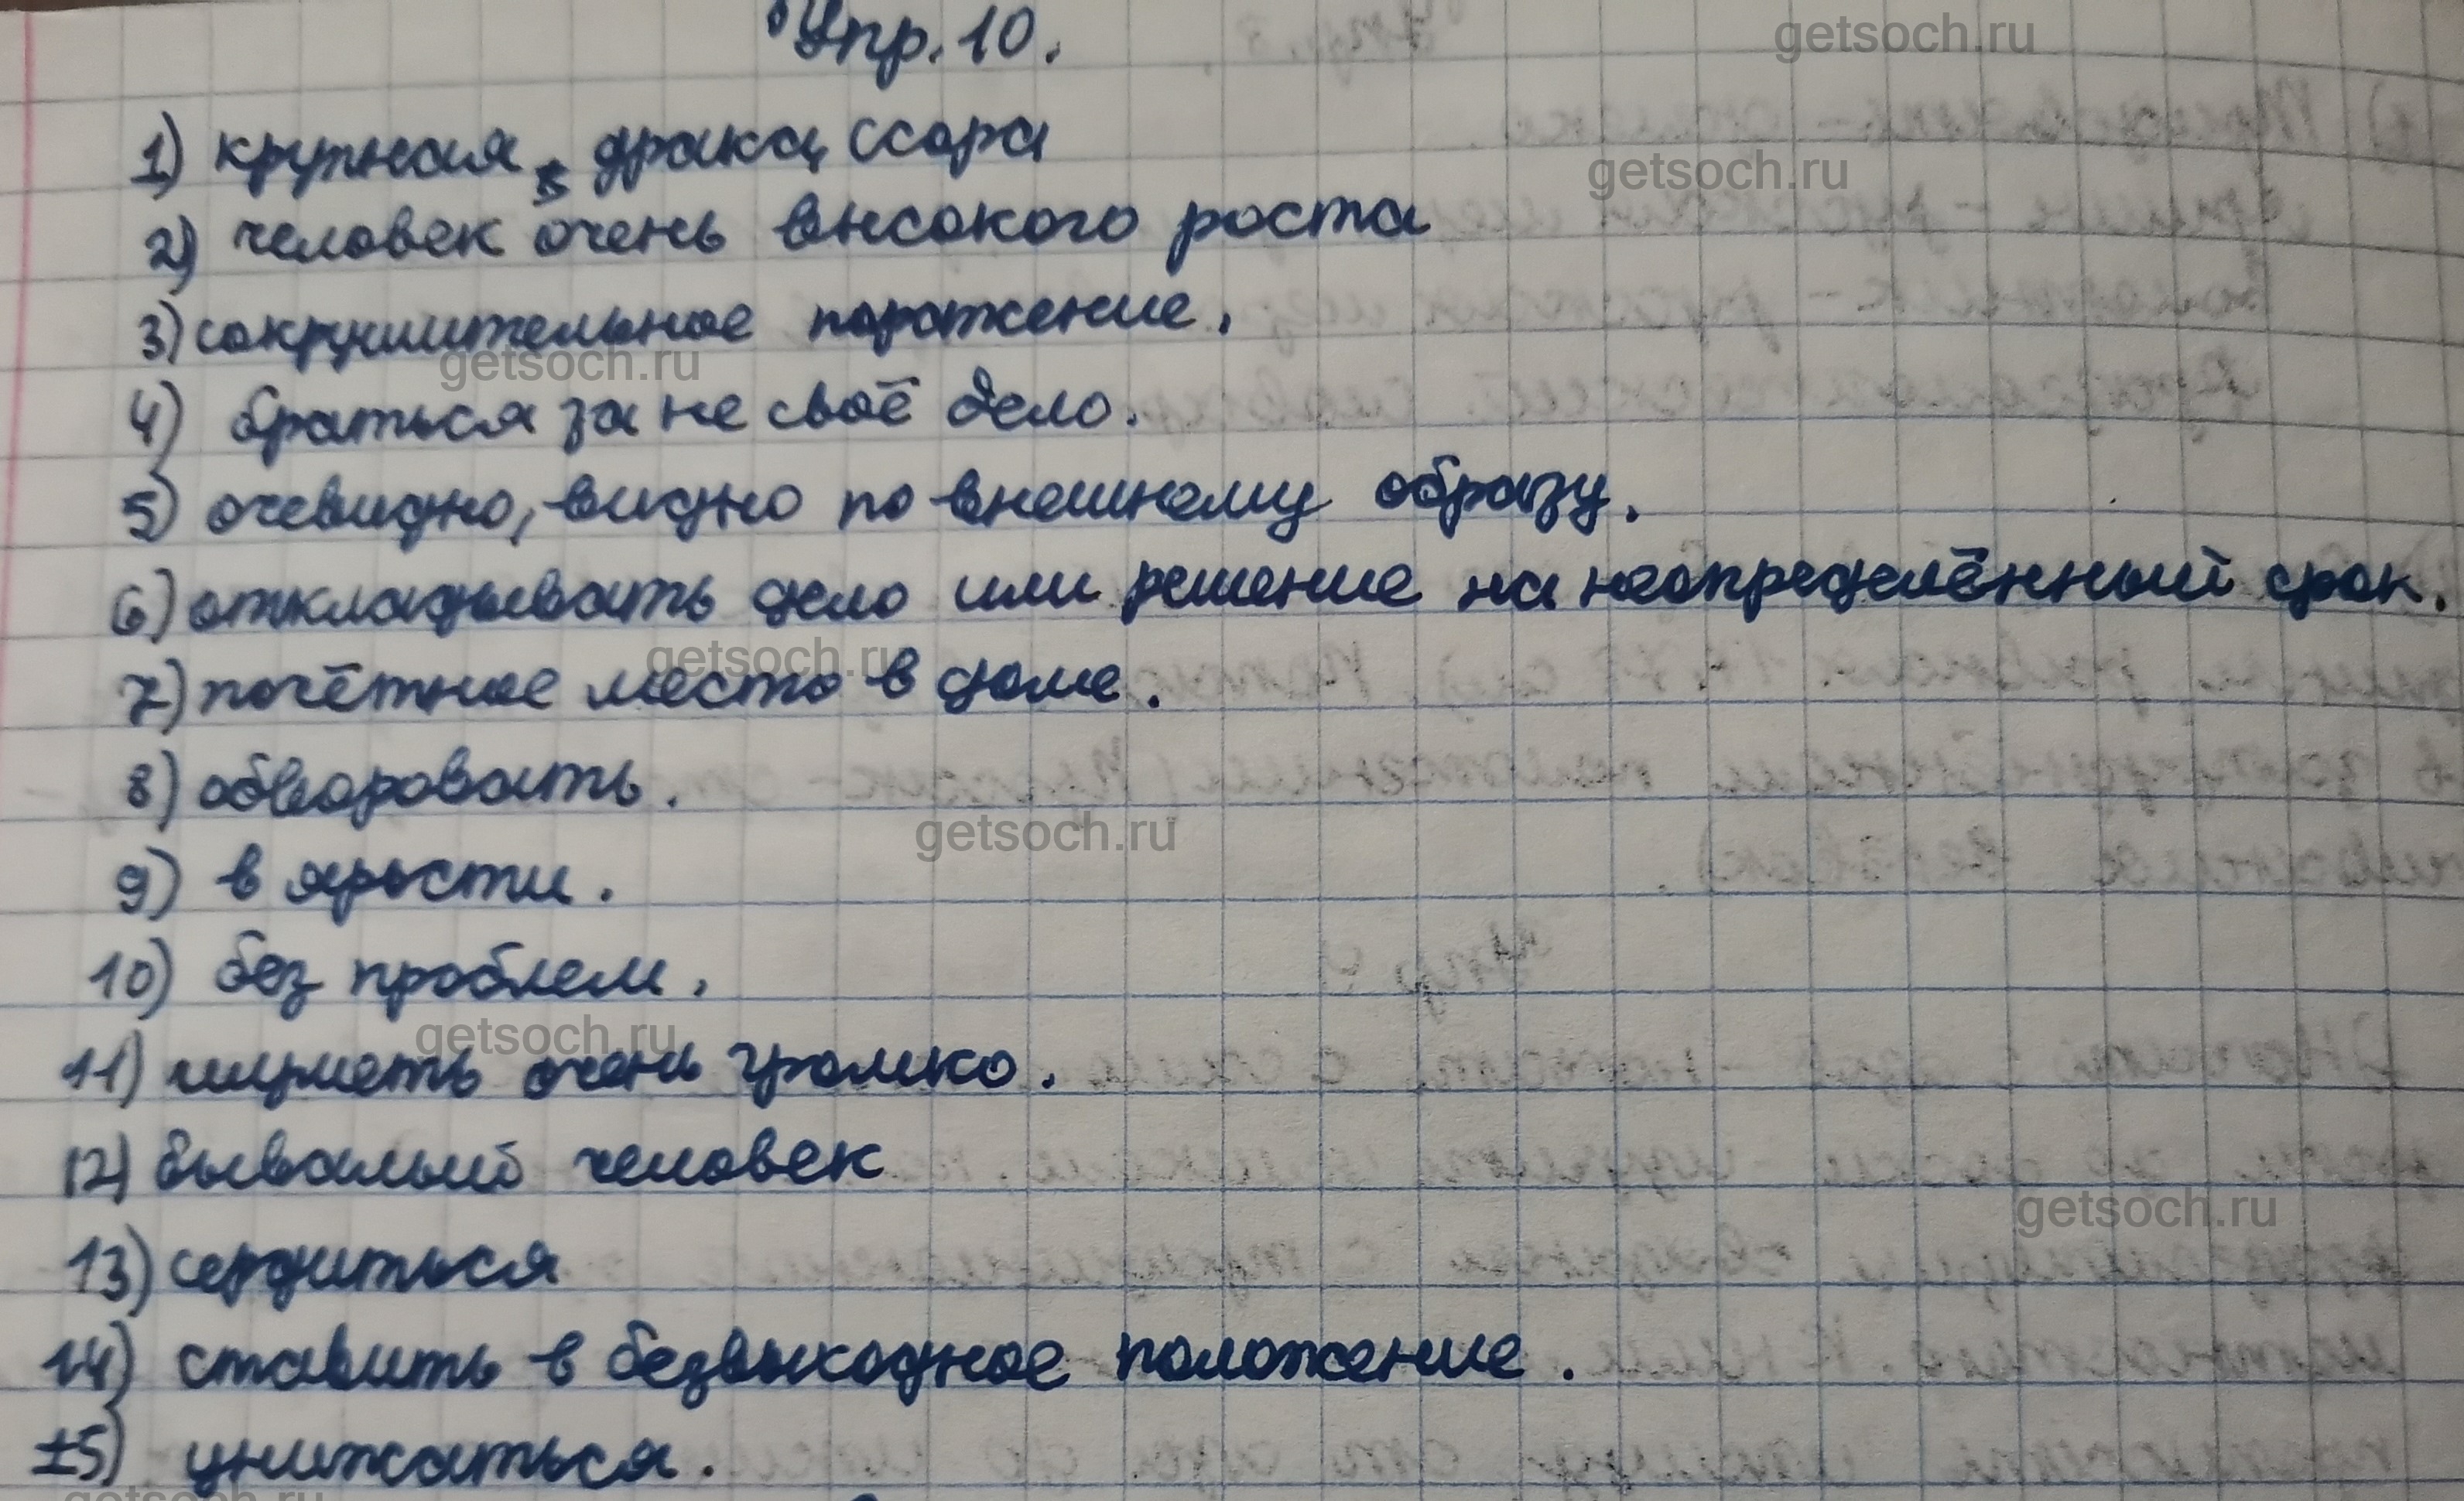 Упр. 10.
getsoch.ru
1) крупная драка, ссора
getsoch.ru
2) человек очень высокого роста
3) сокрушительное поражение.
getsoch.ru
4) браться за не своё дело.
5) очевидно, видно по внешнему образу.
6) откладывать дело или решение на неопределённый срок.
getsoch.ru
7) почётное место в доме.
8) обворовать.
getsoch.ru
9) в ярости.
10) без проблем.
getsoch.ru
11) шуметь очень громко.
12) бывалый человек
getsoch.ru
13) сердиться
14) ставить в безвыходное положение.
15) унижаться.
getsoch.ru